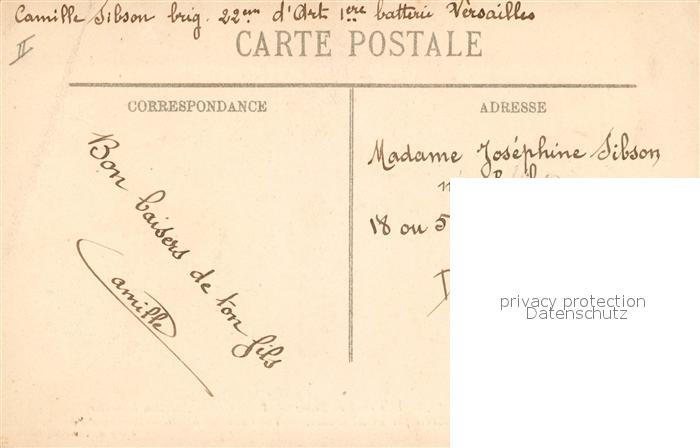 Camille Sibson brig. 22eme d'Art 1ere batterie Versailles
II
CARTE POSTALE
CORRESPONDANCE
ADRESSE
Bon baisers de ton fils
Camille
Madame Joséphine Sibson
18 ou 5
privacy protection
Datenschutz